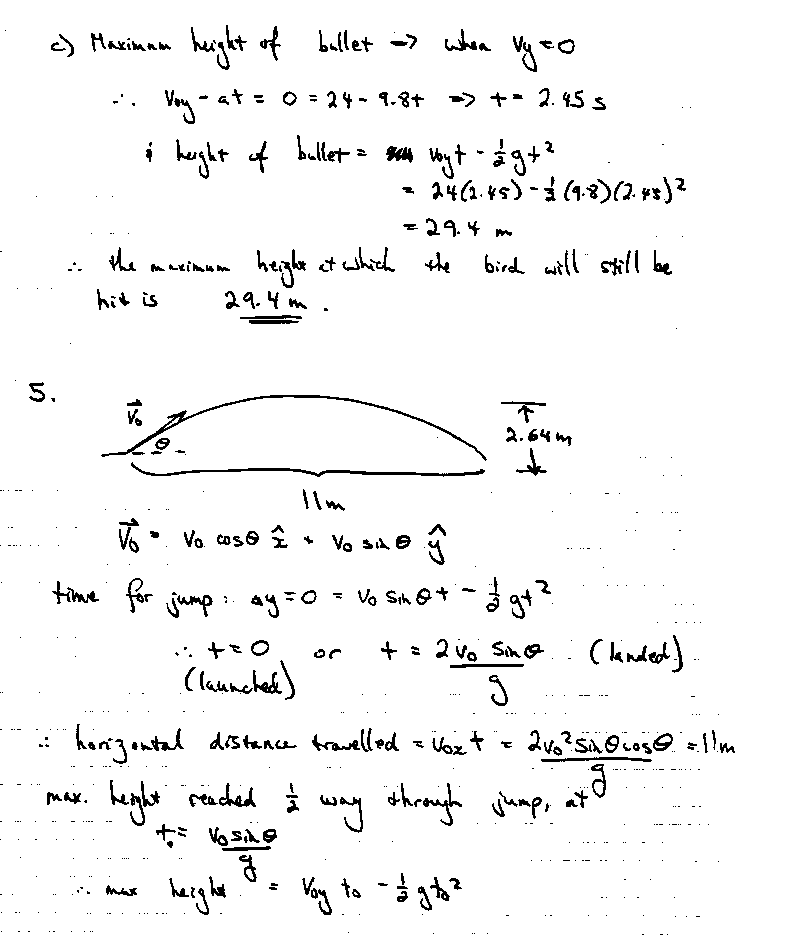 c) Maximum height of bullet => when Vy = 0
∴ Voy - at = 0 = 24 - 9.8t => t = 2.45 s
& height of bullet = Voyt - 1/2 gt²
= 24(2.45) - 1/2 (9.8)(2.45)²
= 29.4 m
∴ the maximum height at which the bird will still be
hit is 29.4 m.
5.
V₀
θ
2.64 m
11m
V₀ = V₀ cosθ x̂ + V₀ sin θ ŷ
time for jump: Δy = 0 = V₀ sin θ t - 1/2 gt²
∴ t = 0 or t = 2V₀ sin θ / g (landed)
(launched)
∴ horizontal distance travelled = V₀ₓ t = 2V₀² sin θ cos θ / g = 11m
max. height reached 1/2 way through jump, at
t₀ = V₀ sin θ / g
∴ max height = Voy t₀ - 1/2 g t₀²